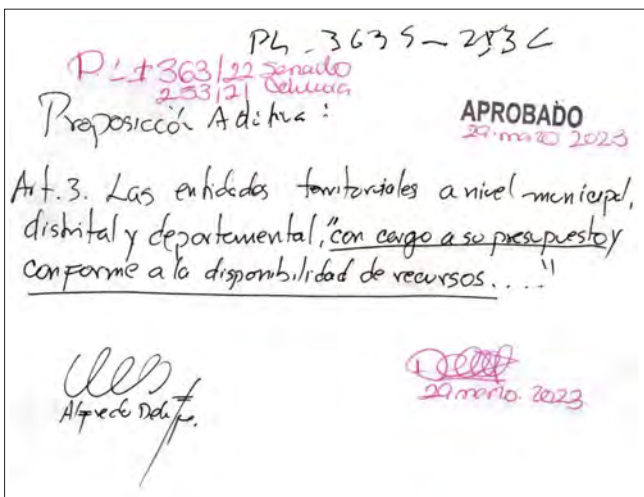 PL. 363 S - 253 C
PL # 363/22 Senado
253/21 Cámara
Proposición Aditiva:
APROBADO
29. marzo 2023
Art. 3. Las entidades territoriales a nivel municipal,
distrital y departamental, "con cargo a su presupuesto y
conforme a la disponibilidad de recursos...."
Alfredo
29 marzo. 2023